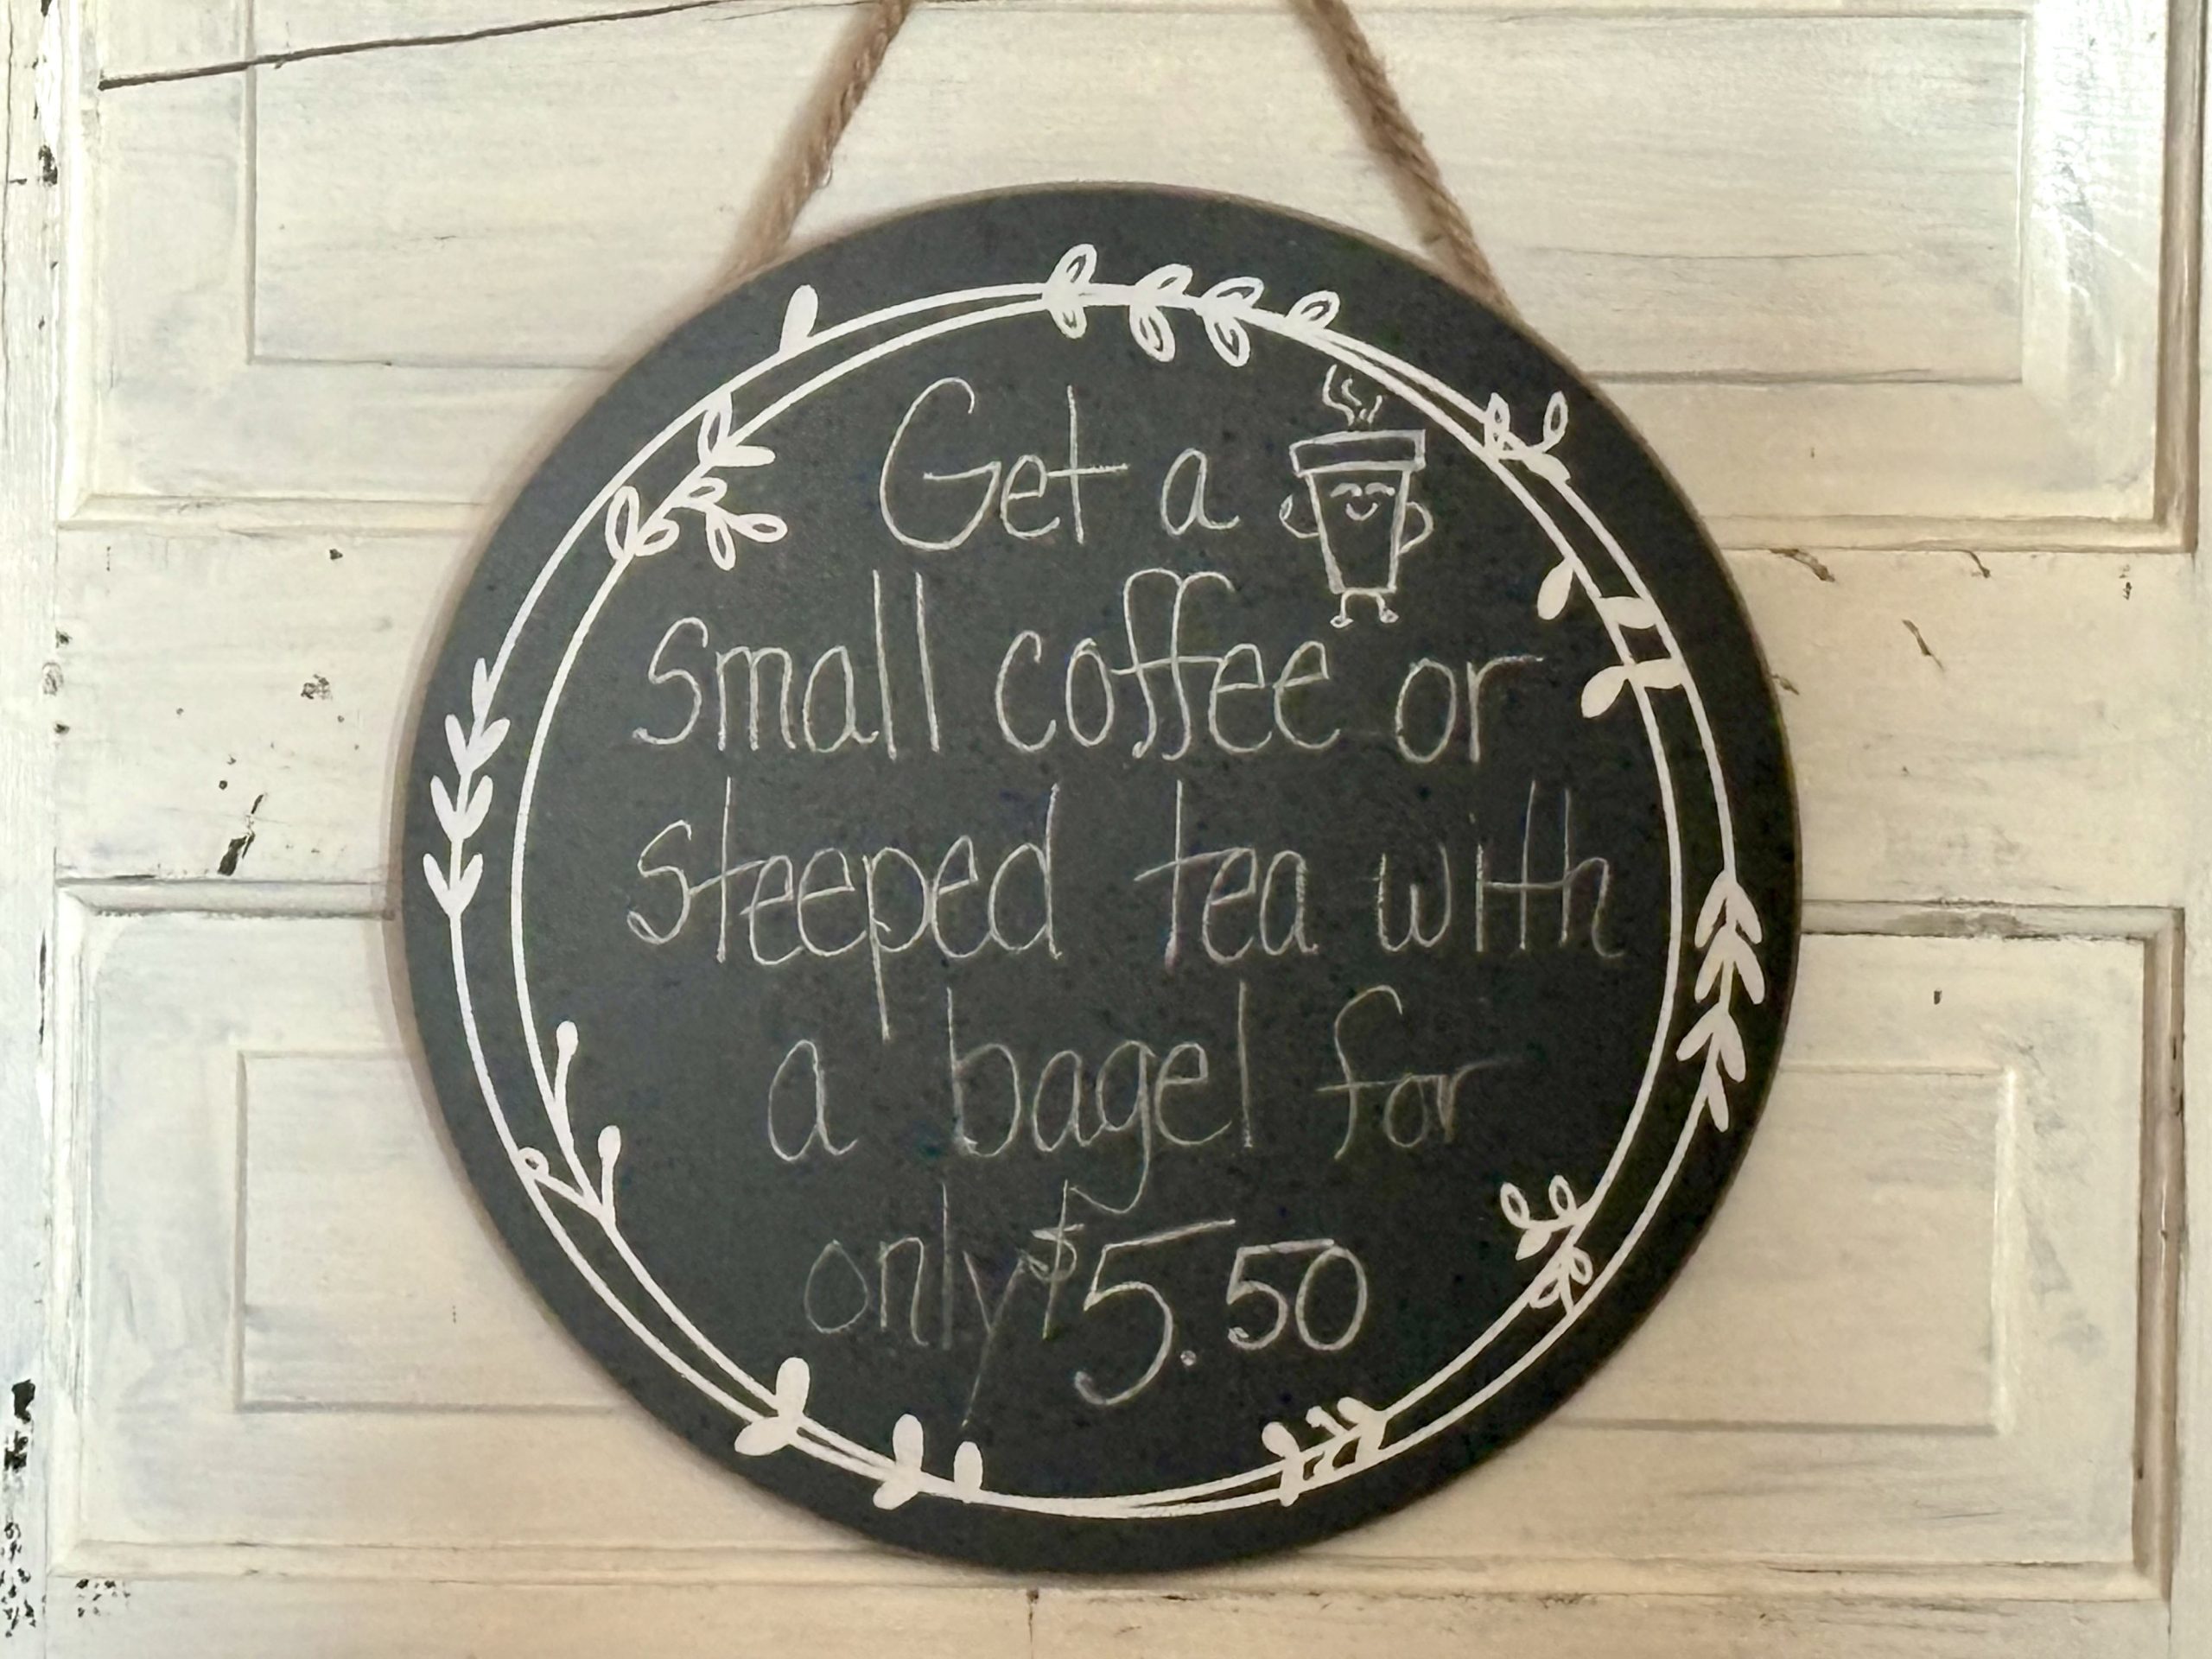 Get a
small coffee or
steeped tea with
a bagel for
only $5.50